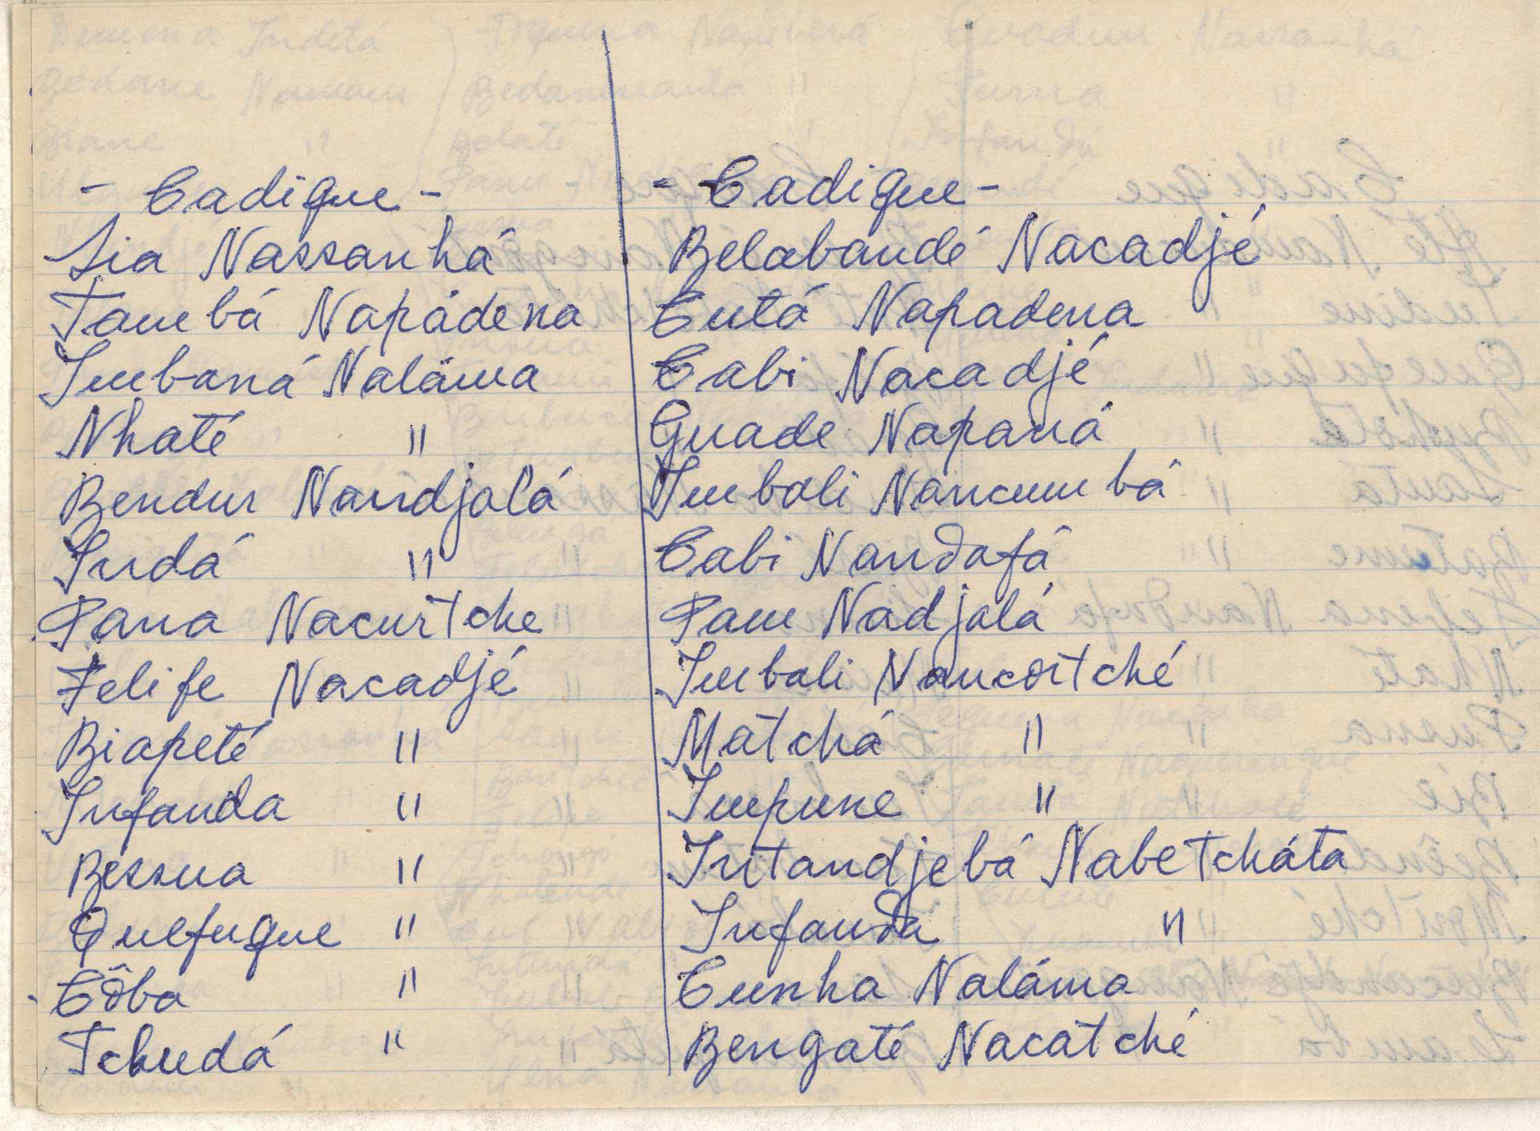 - Cadique -
Sia Nassanhá
Tambá Napádena
Imbaná Naláma
Nhaté "
Bendur Nandjalá
Indá "
Pana Nacuritche
Felife Nacadjé
Biapeté "
Infanda "
Bessua "
Quefugue "
Côba "
Tchudá "
- Cadique -
Belabandé Nacadjé
Cutá Napadena
Cabi Nacadjé
Guade Napaná
Imbali Nancumbá
Cabi Nandafá
Pam Nadjalá
Imbali Nancoitché
Matchá "
Impune "
Intandjebá Nabetcháta
Infanda "
Cunha Naláma
Bengaté Nacatché